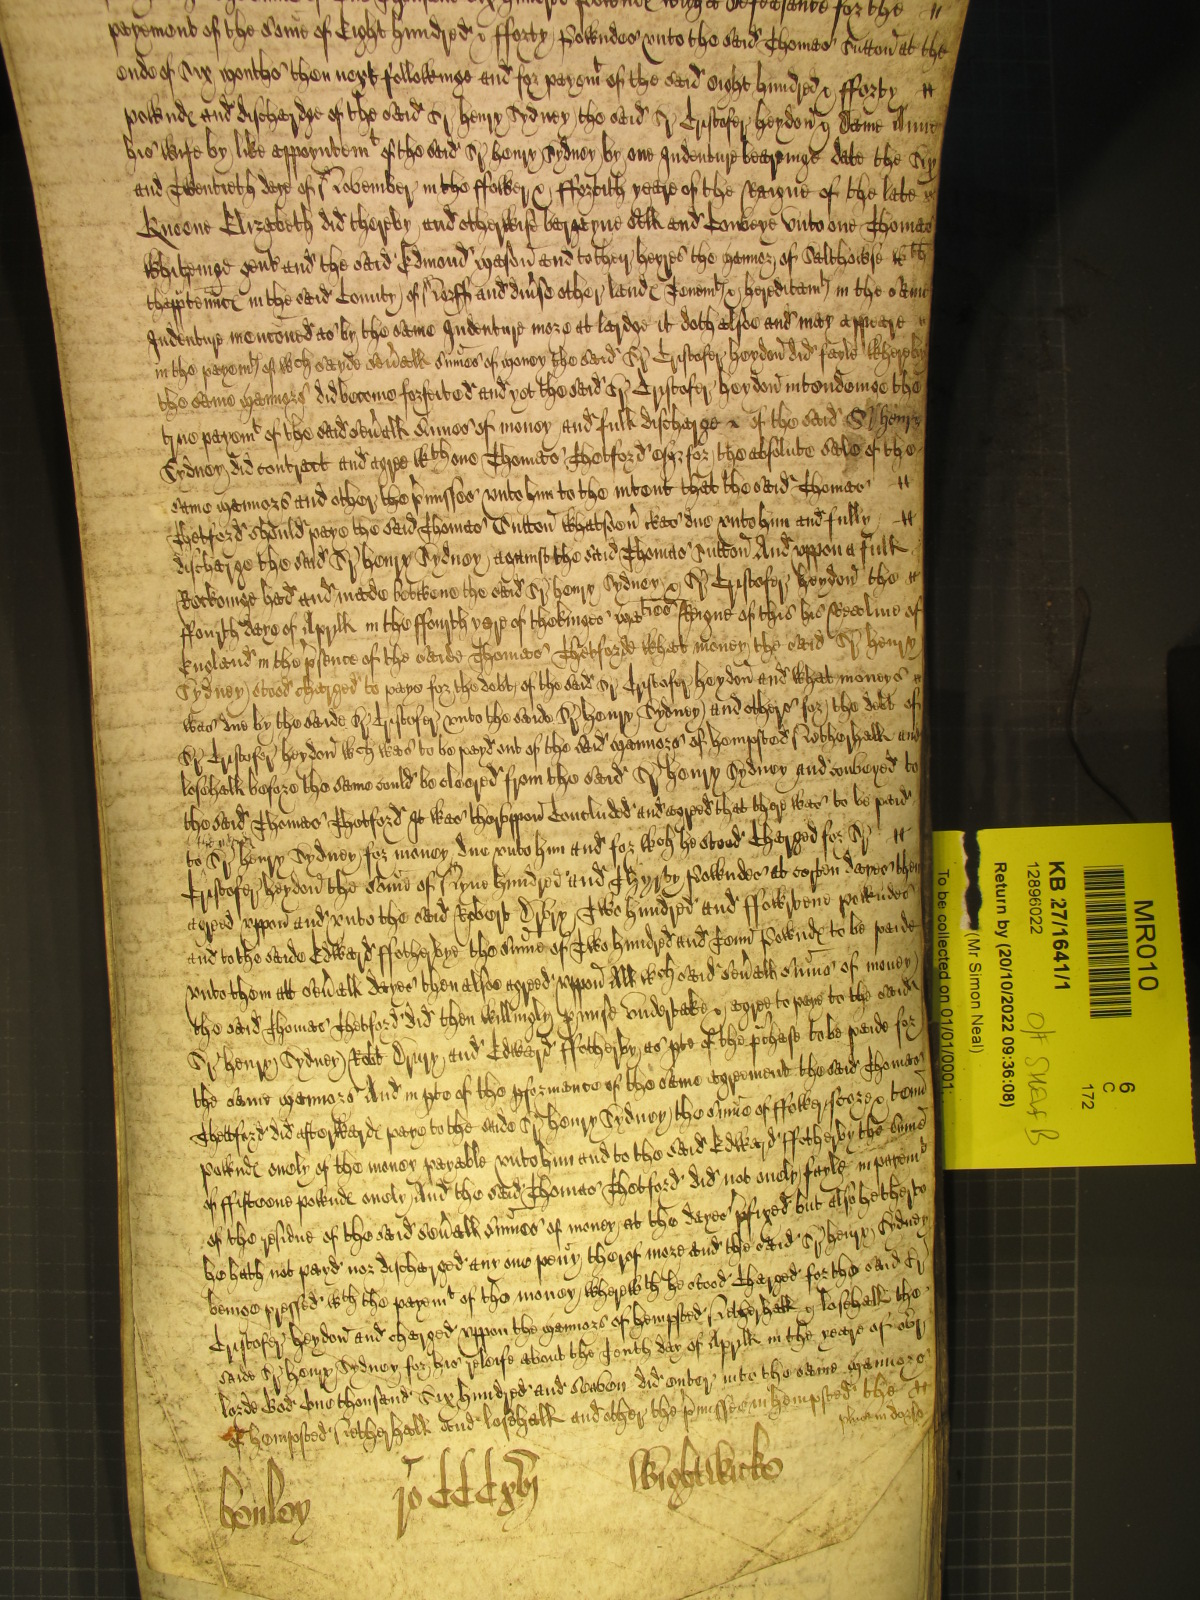 payement of the same of Eight hundred & fforty Poundes unto the said Thomas Sutton at the
ende of Six months then next followinge and for paym^t of the said eight hundred & fforty
poundes and discharge of the said S^r henry Sydney the said S^r Cristofer heydon & Dame Anne
his wife by like appoyntem^t of the said S^r henry Sydney by one Indenture bearinge date the Six
and Twentieth daye of November in the ffower & ffortith yeare of the Raigne of the late
Queene Elizabeth did thereby and otherwise bargayne sell and Conveye unto one Thomas
gent and the said Edmond mason and to their heyres the mannor of Salthowse w^th
thapptennces in the said County of Norff and div'se other landes Tenem^ts & hereditam^ts in the same
Indenture menconed as by the same Indenture more at lardge it doth alsoe and may appeare
in the paym^t of w^ch sayde sev'all Sumes of money the said S^r Cristofer heydon did fayle Whereby
the same mannors did become forfeited and yet the said S^r Cristofer heydon intendeinge the
true payem^t of the said sev'all Sumes of money and full discharge of the said S^r henry
Sydney did contract and agree w^th one Thomas Thetford esq^r for the absolute sale of the
same mannors and other the p'misses unto him to the intent that the said Thomas
Thetford should paye the said Thomas Sutton whatsoev' was due unto him and fully
discharge the said S^r henry Sydney against the said Thomas Sutton And uppon a full
Reckoninge had and made betweene the said S^r henry Sydney & S^r Cristofer heydon the
ffourth daye of Aprill in the ffourth yere of the kinges ma^ties Reigne of this his Realme of
England in the p'sence of the saide Thomas Thetforde what money the said S^r henry
Sydney stood charged to paye for the debt of the said S^r Cristofer heydon and what moneys
was due by the saide S^r Cristofer unto the saide S^r henry Sydney and others for the debt of
S^r Cristofer heydon w^ch was to be payd out of the said mannors of hempsted Netherhall and
losehall before the same could be cleered from the said S^r henry Sydney and conveyed to
the said Thomas Thetford It was thereuppon Concluded and agreed that there was to be paid
to S^r henry Sydney for money due unto him and for w^ch he stood Charged for S^r
Cristofer heydon the Sume of Nyne hundred and Thyrty Poundes at certen dayes then
agreed uppon and unto the said Robert Drury Two hundred and ffowrtene poundes
and to the saide Edward ffotherbye the Sume of Two hundred and Tenn Poundes to be paide
unto them att sev'all dayes then alsoe agreed uppon All w^ch said sev'all Sumes of money
the said Thomas Thetford did then willingly p'mise undertake & agree to paye to the said
S^r henry Sydney Rob^t Drury and Edward ffotherby as p'te of the p'chase to be paide for
the same mannors And in p'te of the p'formance of the same agreement the said Thomas
Thetford did afterwardes paye to the saide S^r henry Sydney the Sume of ffowerscore & tenn
poundes onely of the money payable unto him and to the said Edward ffotherby the Sume
of ffifteene poundes onely And the said Thomas Thetford did not onely fayle in paym^t
of the residue of the said sev'all Sumes of money at the dayes p'fixed but also hetherto
he hath not payd nor discharged any one peny therof more and the said S^r henry Sydney
beinge pressed w^th the payem^t of the money wherew^th he stood Charged for the said S^r
Cristofer heydon and charged uppon the mannors of hempsted Netherhall & losehall the
saide S^r henry Sydney for his releife about the Tenth day of Aprill in the yeare of o^r
lorde God One thousand Six hundred and Seaven did enter into the same mannors
of hempsted Netherhall and losehall and other the p'misses in hempsted the
plus in dorso
henley
ro CCCCxvj
Wightwicke
MR010
KB 27/1641/1
12896022
Return by (20/10/2022 09:36:08)
(Mr Simon Neal)
To be collected on 01/01/0001
6
C
172
O/S Shelf B